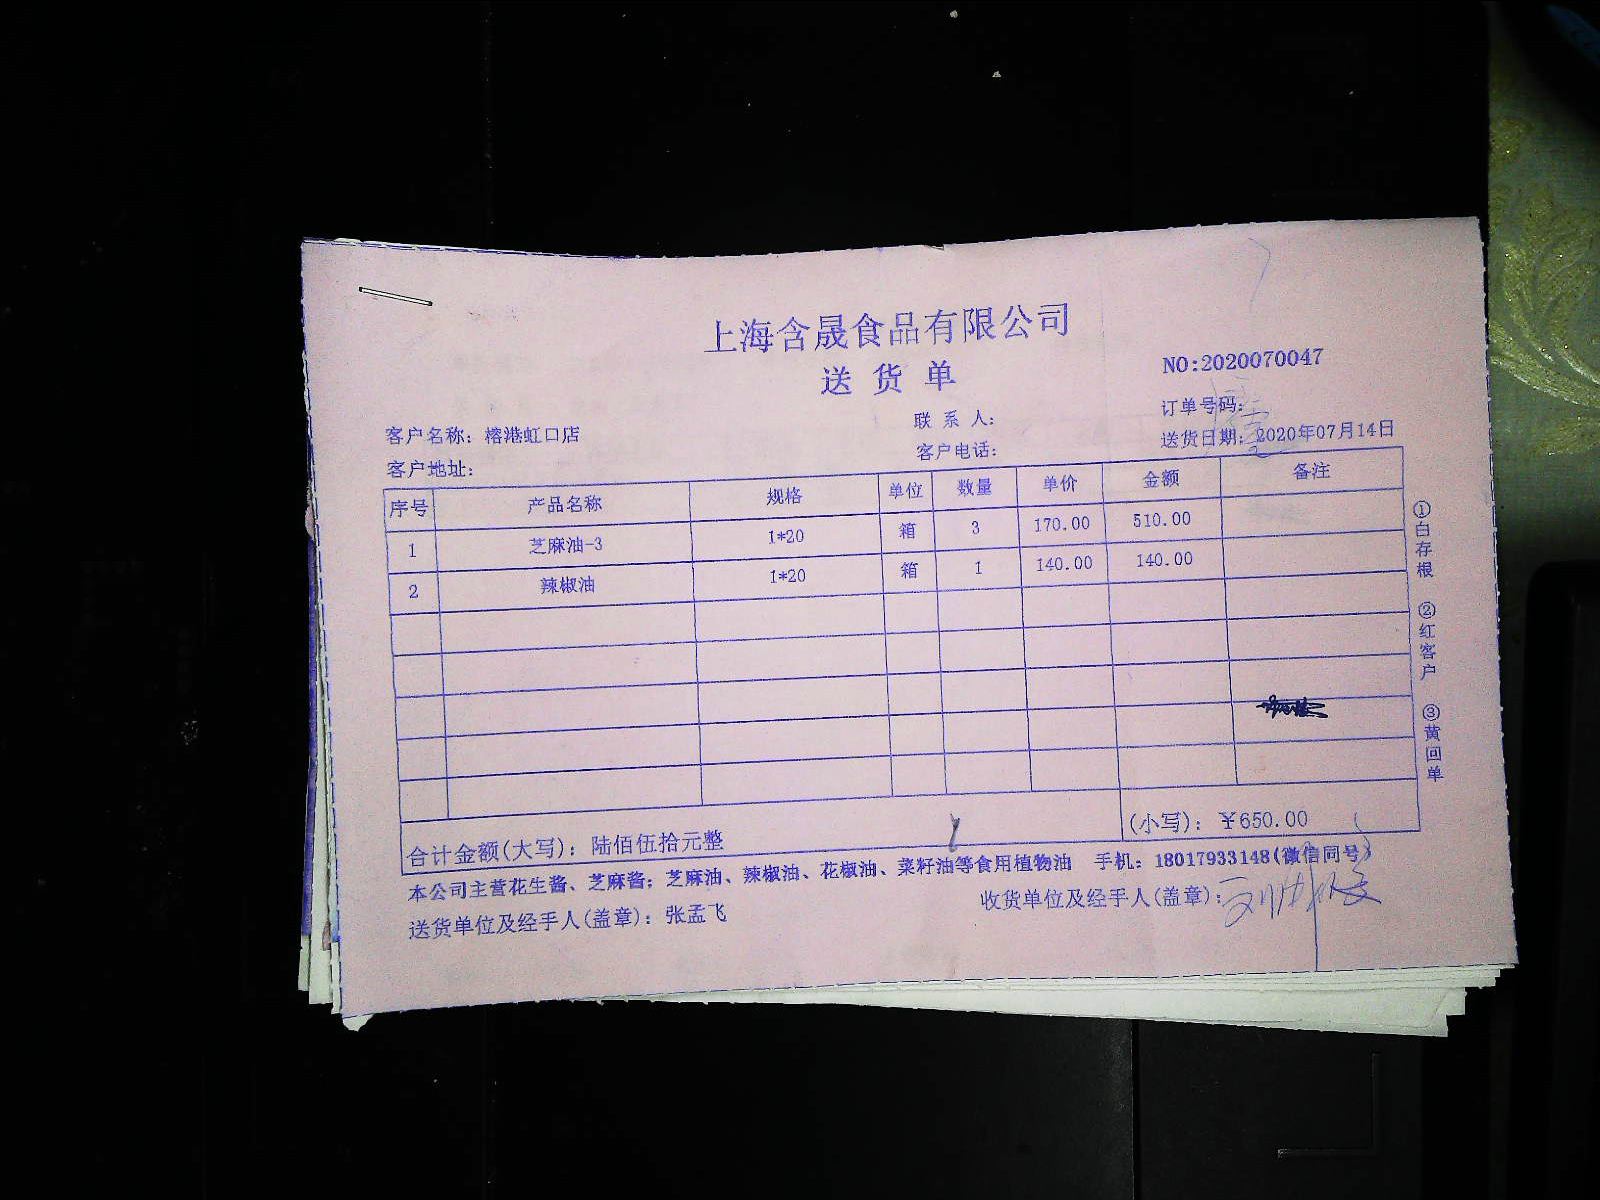 上海含晟食品有限公司
送货单
NO:2020070047
订单号码:
联系人:
客户名称: 榕港虹口店
送货日期: 2020年07月14日
客户电话:
客户地址:
序号 产品名称 规格 单位 数量 单价 金额 备注
1 芝麻油-3 1*20 箱 3 170.00 510.00
2 辣椒油 1*20 箱 1 140.00 140.00
①白存根 ②红客户 ③黄回单
合计金额(大写): 陆佰伍拾元整 (小写): ¥650.00
本公司主营花生酱、芝麻酱; 芝麻油、辣椒油、花椒油、菜籽油等食用植物油 手机: 18017933148(微信同号)
送货单位及经手人(盖章): 张孟飞 收货单位及经手人(盖章):